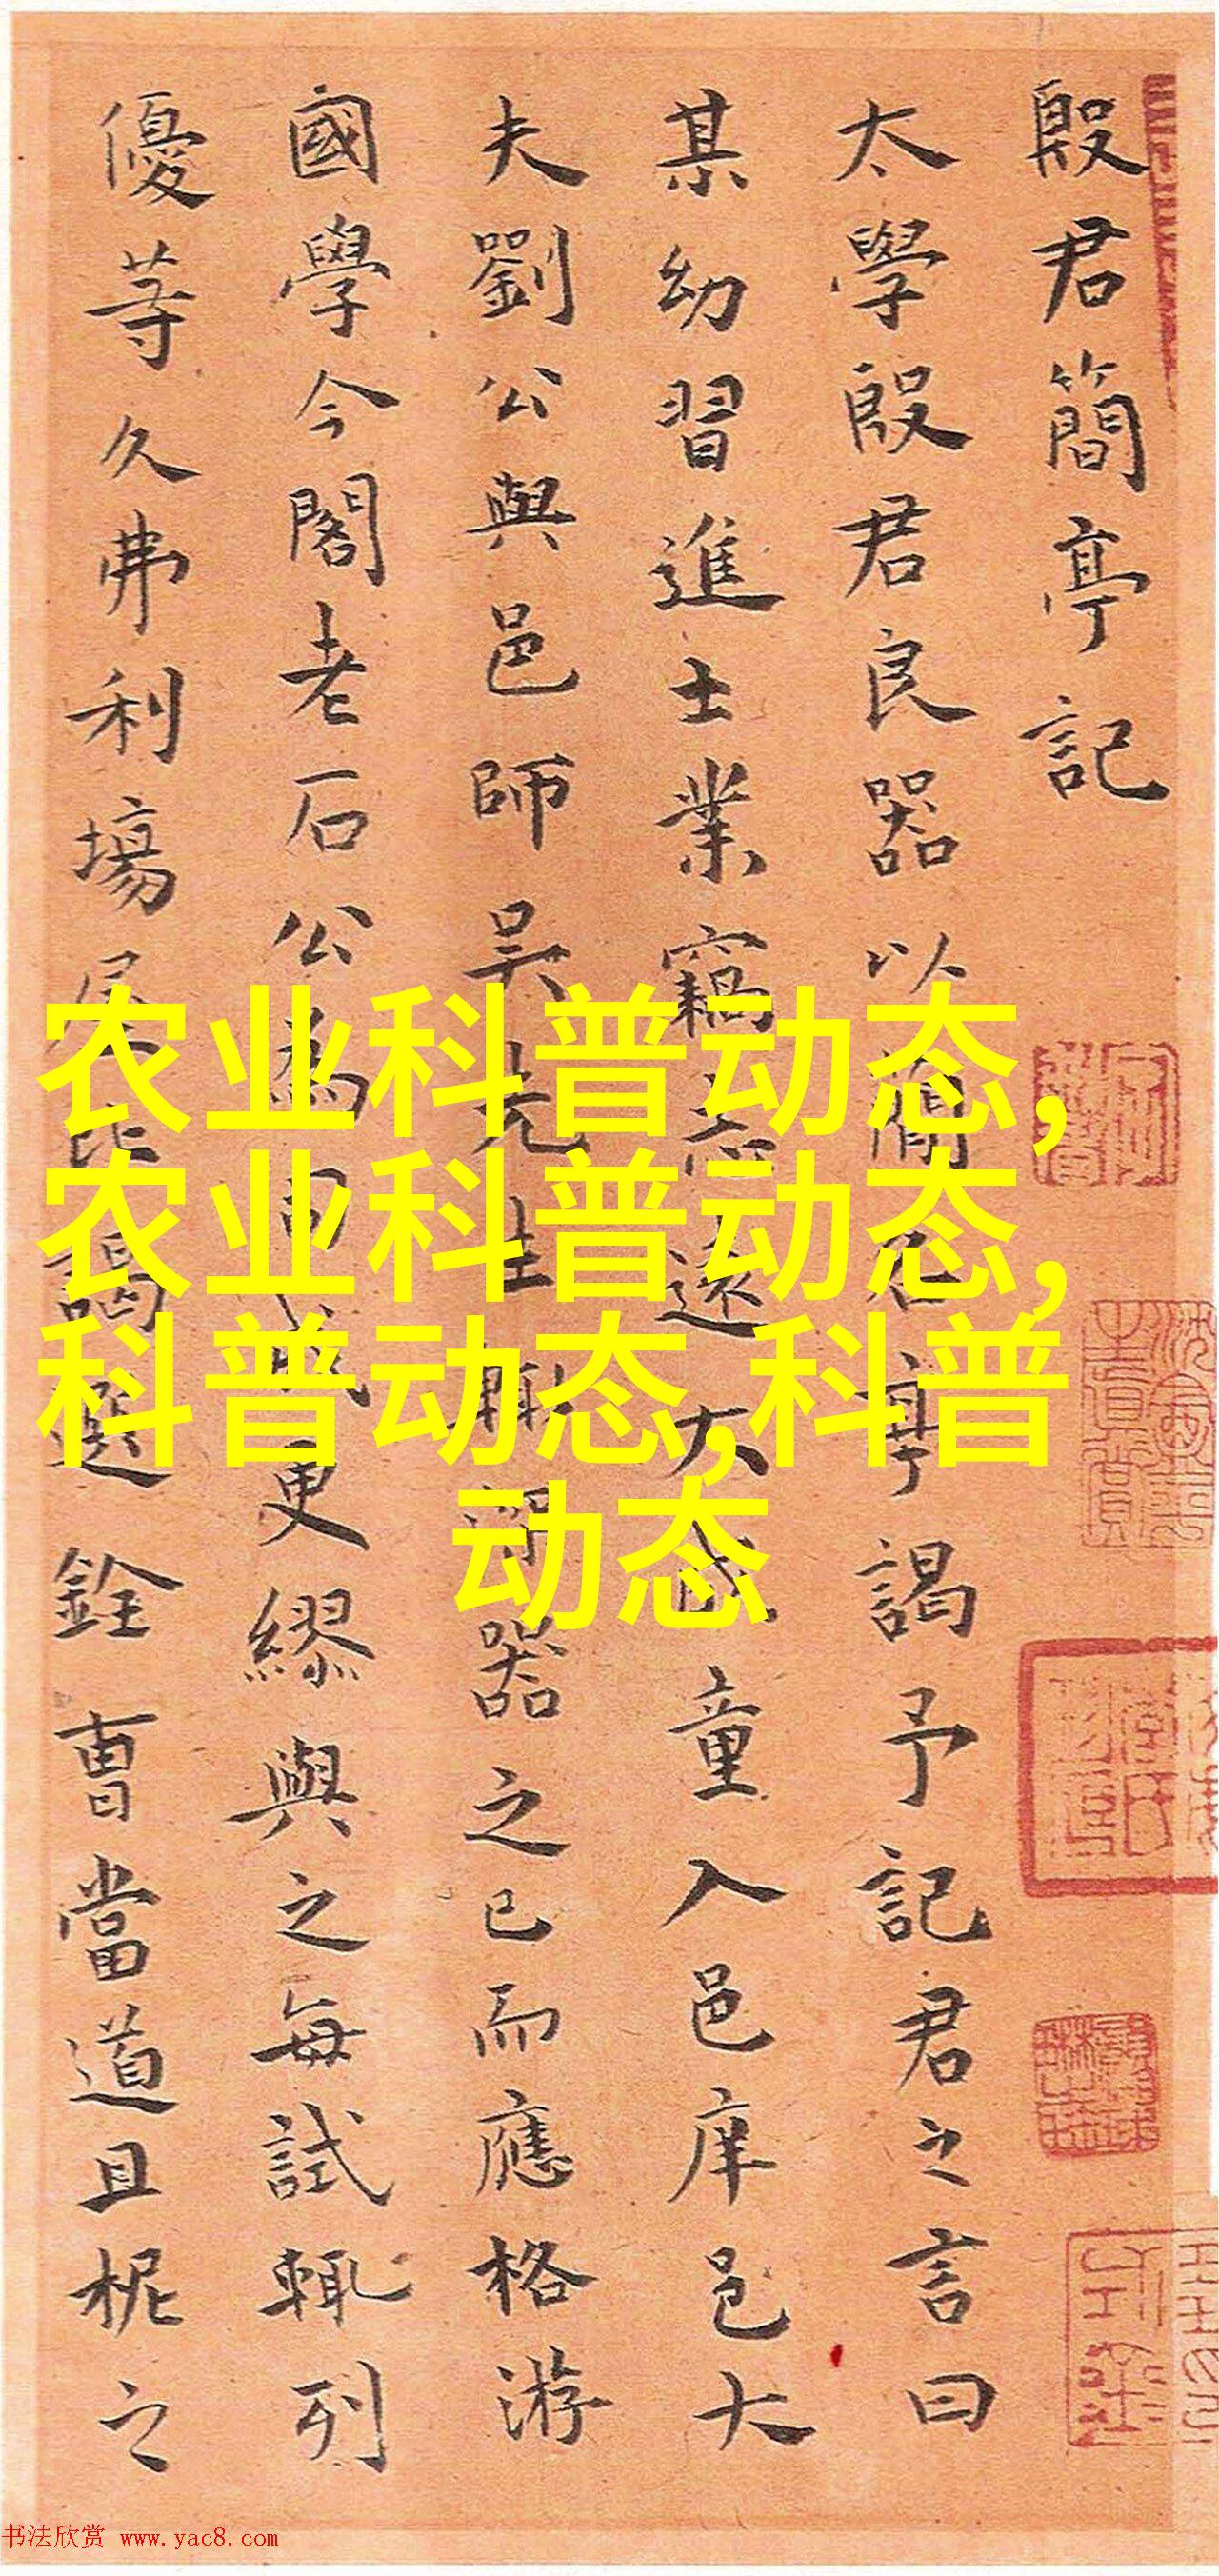 殷君簡亭記
太學殷君良器以簡名亭謁予記君之言曰
某幼習進士業竊志遠大成童入邑庠邑大
夫劉公與邑師吳先生 器之已而應格游
國學今閣老石公為司成更繆與之每試輒列
優等久弗利場屋比謁選銓曹當道且柅之
农业科普动态,
农业科普动态,
科普动态,科普
动态
书法欣赏 www.yac8.com